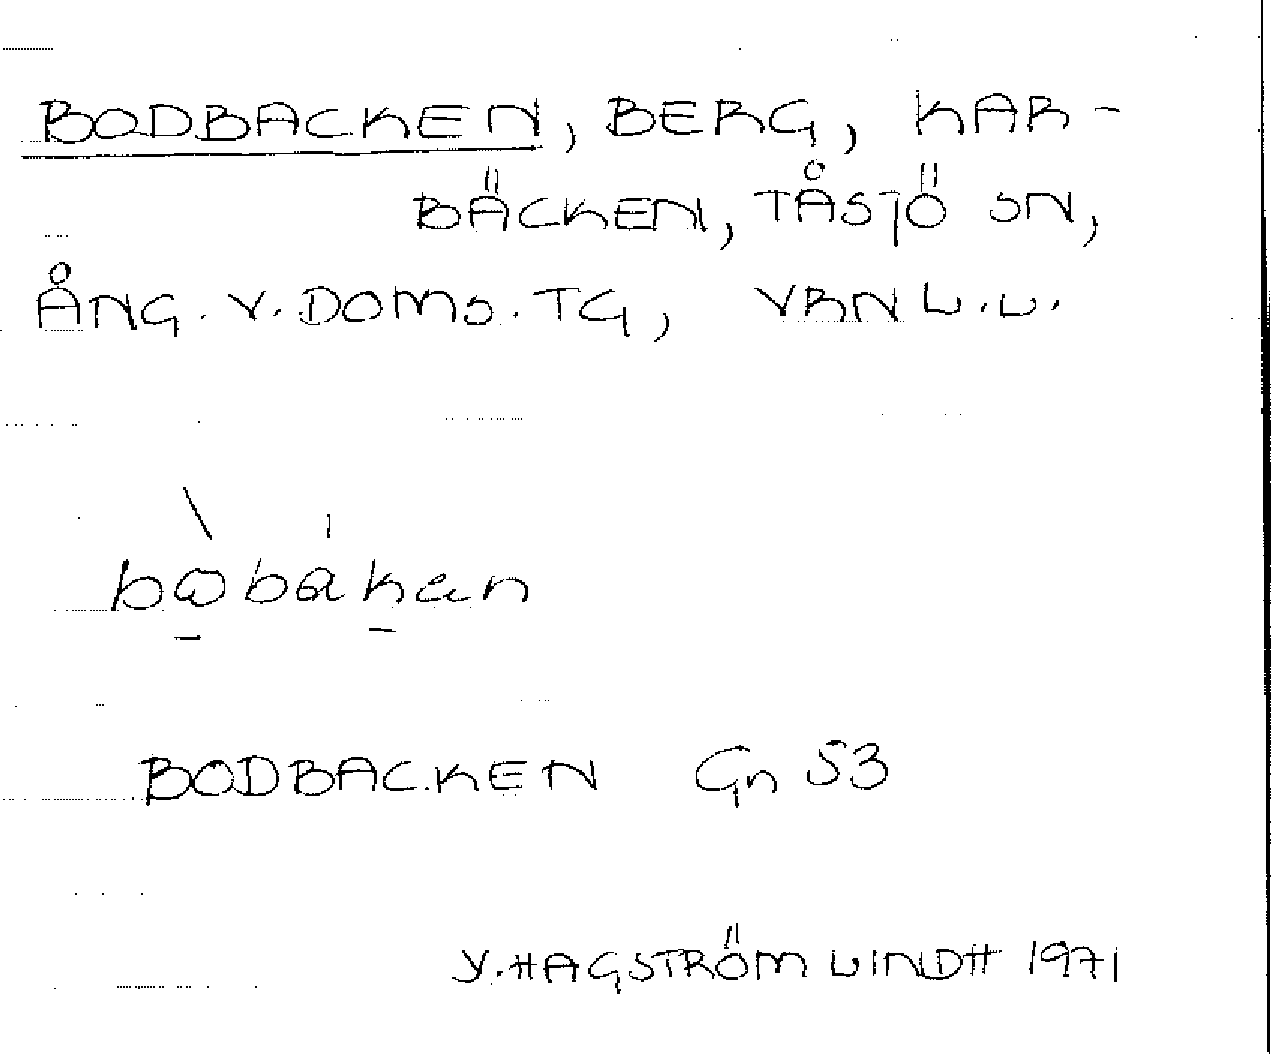 BODBACKEN, BERG, KAR-
BÄCKEN, TÅSJÖ SN,
ÅNG. V. DOMS. TG, VBN L.L.
bωbakən
BODBACKEN Gn 53
Y. HAGSTRÖM LINDH 1971